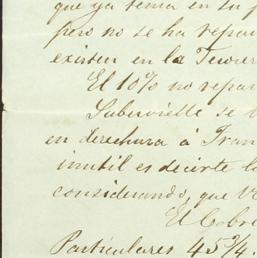 que ya tenia en su p
pero no se ha repar
existen en la Tesorer
El 10% no repar
Suberville se
en derechura á Fran
inutil es decirte l
considerando, que V
El Cobre
Particulares 45 3/4.